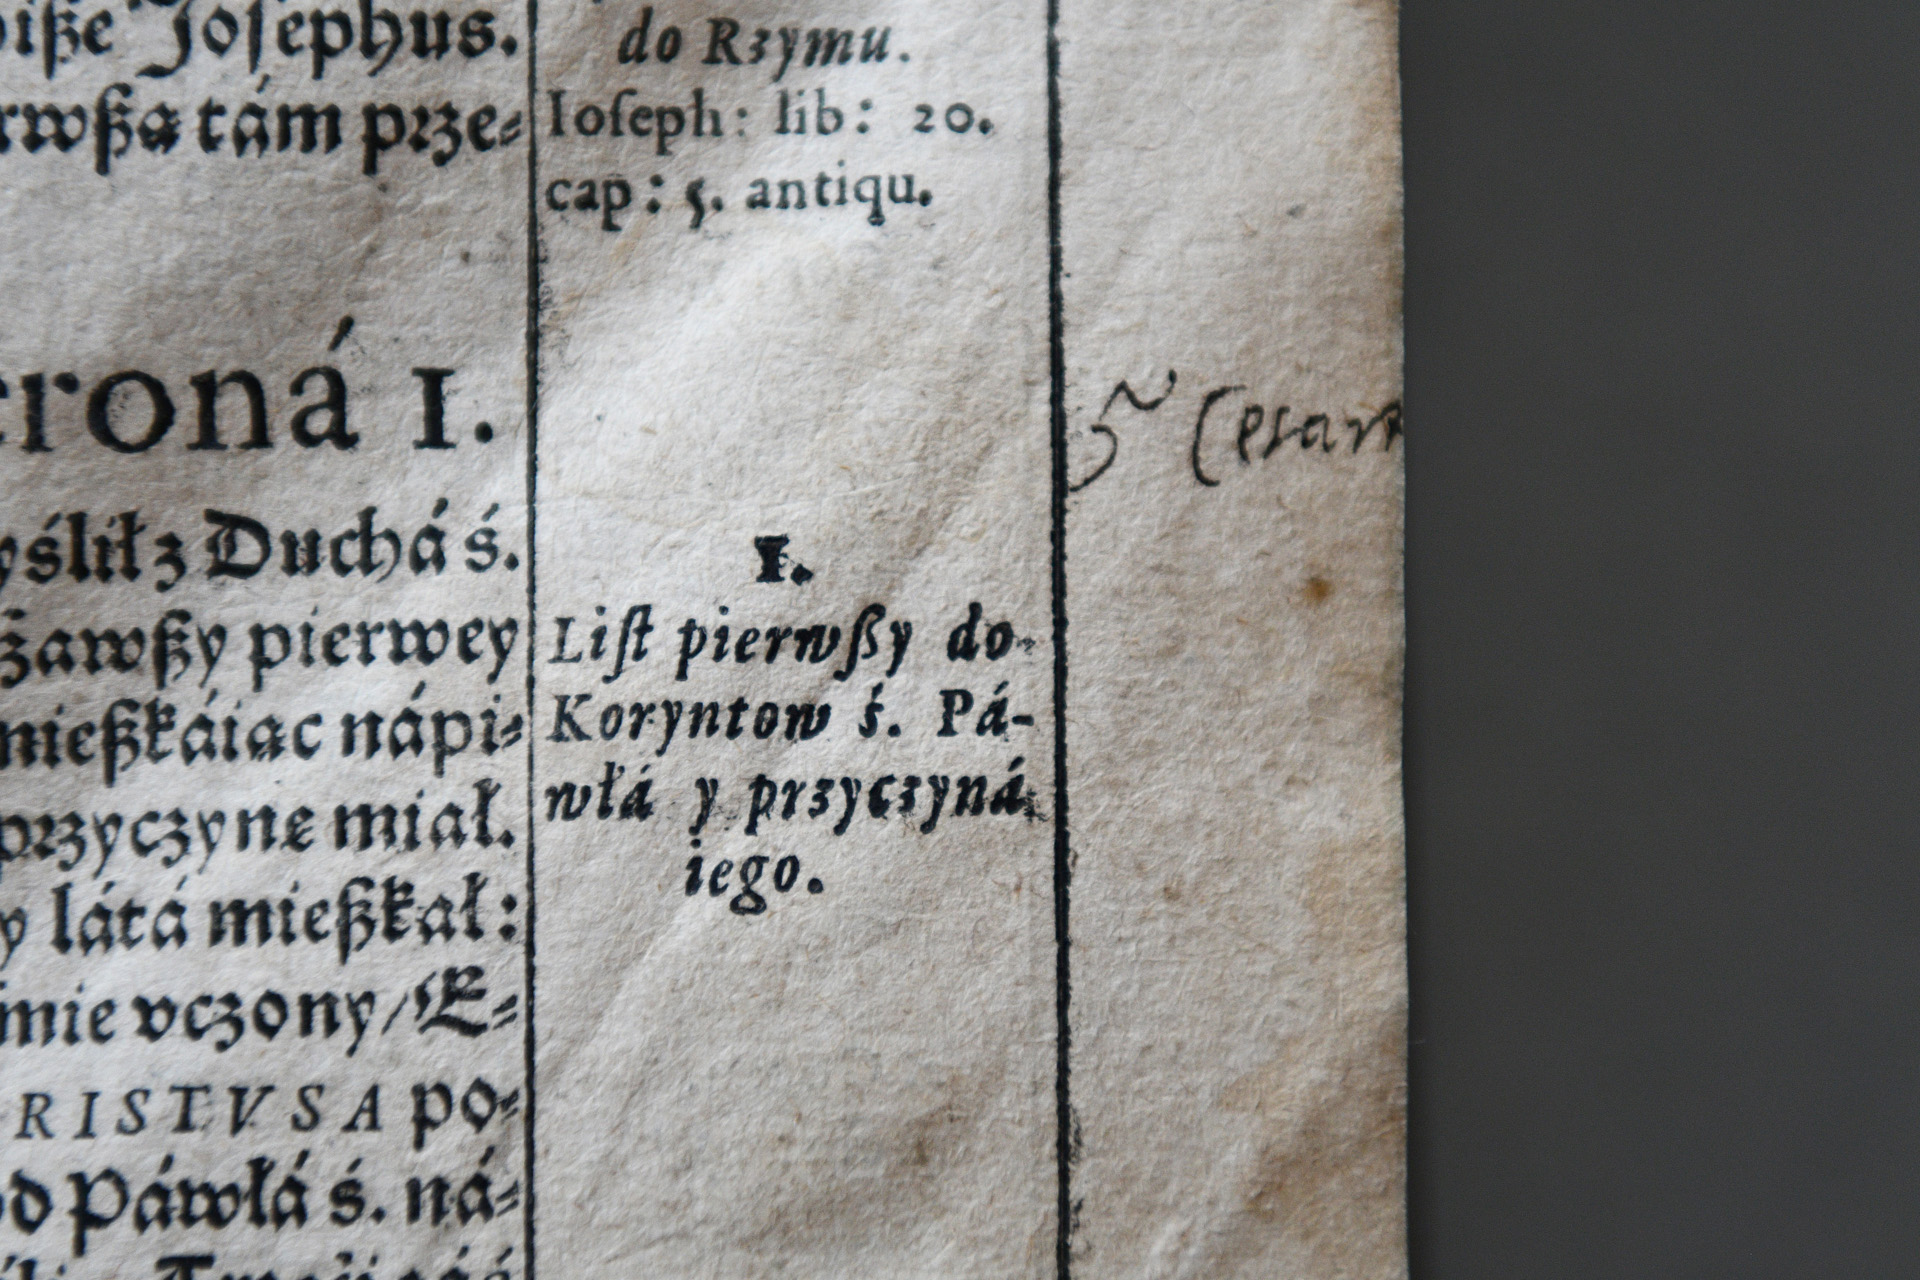 iße Josephus.
rwßą tám prze-
eroná 1.
yślił z Duchá ś.
żawßy pierwey
mießkáiąc nápi-
przyczynę miał.
y látá mießkał:
mie vczony/ E-
RISTVSA po-
od Páwłá ś. ná-
do Rzymu.
Ioſeph: lib: 20.
cap: 5. antiqu.
1.
Liſt pierwſßy do
Koryntow ś. Pá-
włá y przyczyná
iego.